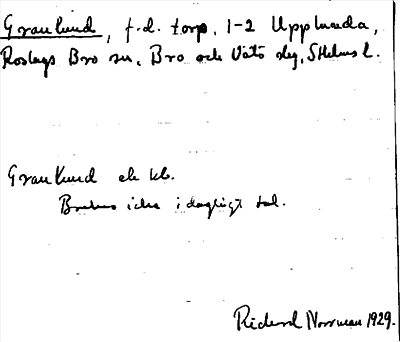 Granlund, f.d. torp, 1-2 Upplunda,
Roslags Bro sn, Bro och Vätö slg, Sthlms l.
Granlund ek kb.
Brukas icke i dagligt tal.
Rickard Norrman 1929.